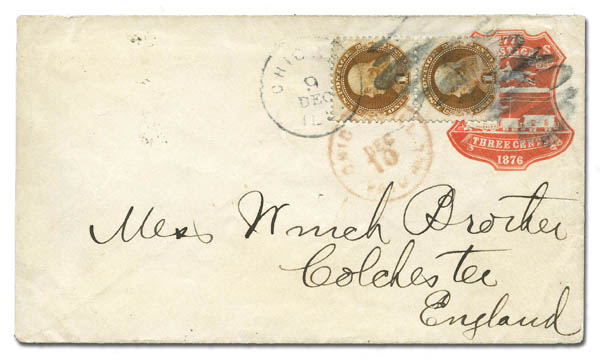 CHIC
9
DEC
ILL
U.S.
POSTAGE
THREE CENTS
1876
CHIC
DEC
10
Mess Winch Brother
Colchester
England